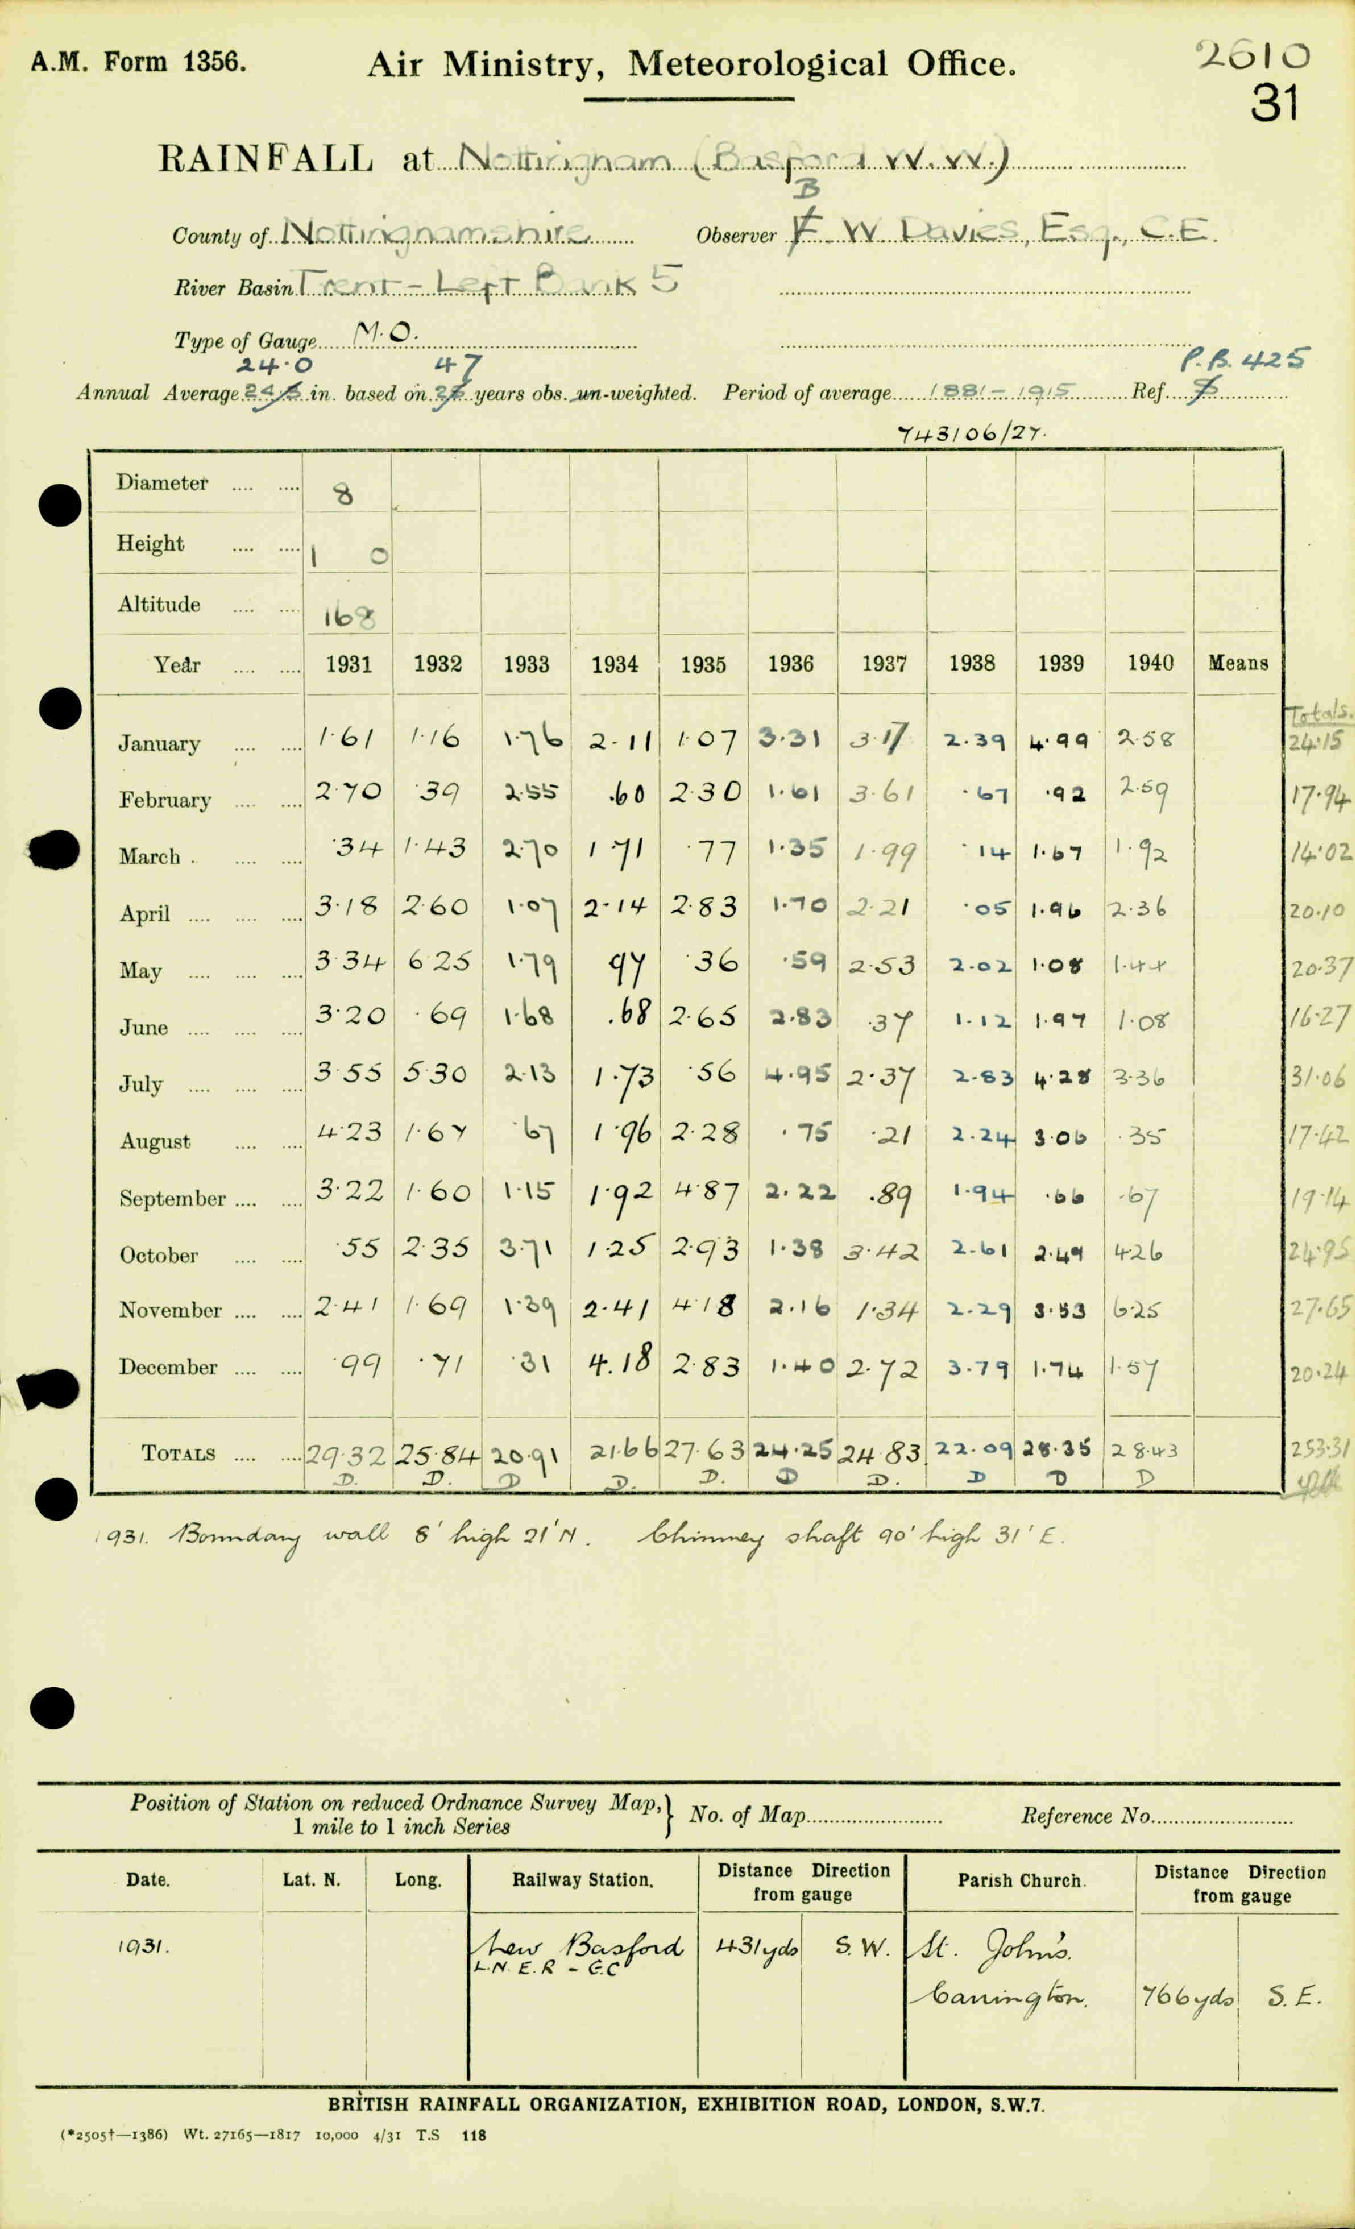 A.M. Form 1356. Air Ministry, Meteorological Office. 2610
31
RAINFALL at Nottingham (Basford W.W.)
B
County of Nottinghamshire Observer F W Davies, Esq., C.E.
River Basin Trent – Left Bank 5
Type of Gauge M.O.
24·0 47 P.B. 425
Annual Average in. based on years obs. un-weighted. Period of average 1881–1915 Ref.
743106/27.
Diameter 8
Height 1 0
Altitude 168
Year 1931 1932 1933 1934 1935 1936 1937 1938 1939 1940 Means
Totals.
January 1·61 1·16 1·76 2·11 1·07 3·31 3·17 2·39 4·99 2·58 24·15
February 2·70 ·39 2·55 ·60 2·30 1·61 3·61 ·67 ·92 2·59 17·94
March ·34 1·43 2·70 1·71 ·77 1·35 1·99 ·14 1·67 1·92 14·02
April 3·18 2·60 1·07 2·14 2·83 1·70 2·21 ·05 1·96 2·36 20·10
May 3·34 6·25 1·79 97 ·36 ·59 2·53 2·02 1·08 1·44 20·37
June 3·20 ·69 1·68 ·68 2·65 2·83 ·37 1·12 1·97 1·08 16·27
July 3·55 5·30 2·13 1·73 ·56 4·95 2·37 2·83 4·28 3·36 31·06
August 4·23 1·67 ·67 1·96 2·28 ·75 ·21 2·24 3·06 ·35 17·42
September 3·22 1·60 1·15 1·92 4·87 2·22 ·89 1·94 ·66 ·67 19·14
October ·55 2·35 3·71 1·25 2·93 1·38 3·42 2·61 2·49 4·26 24·95
November 2·41 1·69 1·39 2·41 4·18 2·16 1·34 2·29 3·53 6·25 27·65
December ·99 ·71 ·31 4.18 2·83 1·40 2·72 3·79 1·74 1·57 20·24
TOTALS 29·32 25·84 20·91 21·66 27·63 24·25 24·83 22·09 28·35 28·43 253·31
D. D. D D. D. D D. D D D
1931. Boundary wall 8' high 21' N. Chimney shaft 90' high 31' E.
Position of Station on reduced Ordnance Survey Map,} No. of Map Reference No.
1 mile to 1 inch Series
Date. Lat. N. Long. Railway Station. Distance Direction from gauge Parish Church. Distance Direction from gauge
1931. New Basford 431yds S.W. St. John's.
L.N.E.R – G.C
Carrington. 766yds S.E.
BRITISH RAINFALL ORGANIZATION, EXHIBITION ROAD, LONDON, S.W.7.
(*2505†—1386) Wt. 27165—1817 10,000 4/31 T.S 118